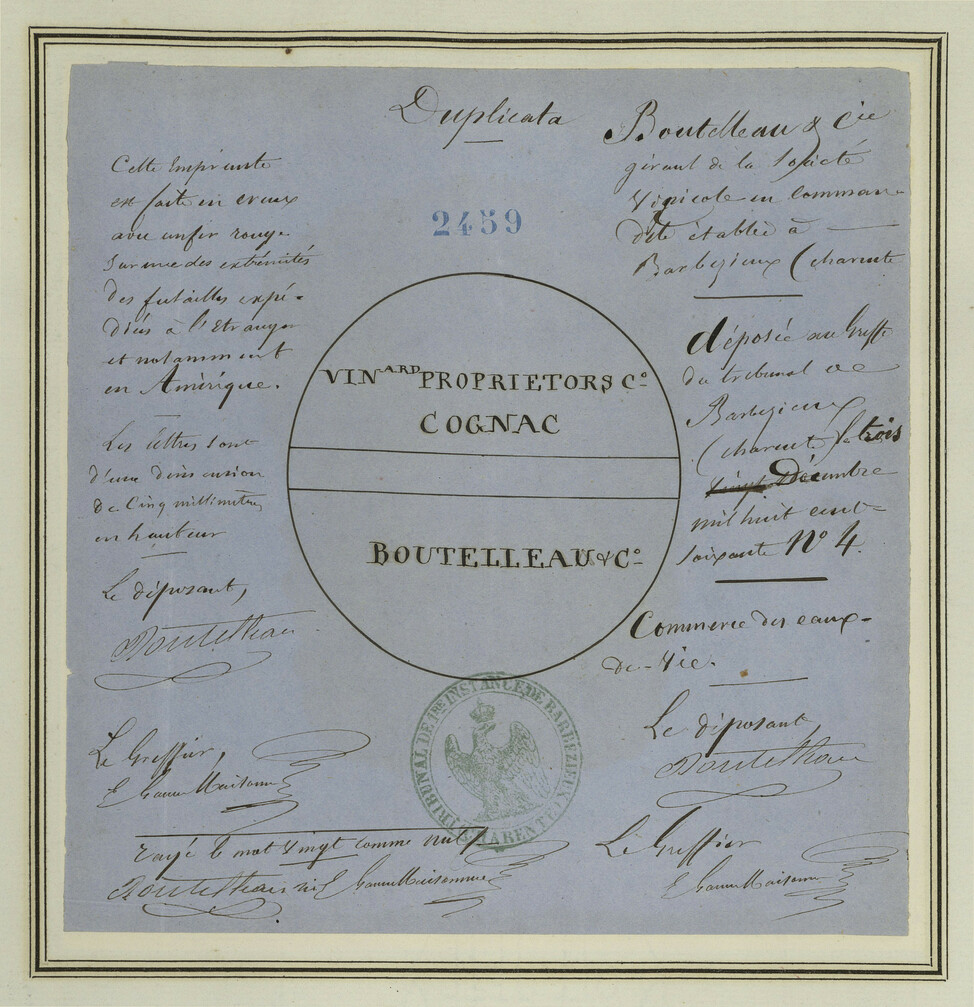 Duplicata
2459
Cette Empreinte
est faite en creux
avec un fer rouge
sur une des extrémités
des futailles expé-
diées à l'Etranger
et notamment
en Amérique.
Les lettres sont
d'une dimension
de Cinq millimètres
en hauteur
Le déposant,
Boutelleau
Le Greffier,
VINARD PROPRIETORS Co
COGNAC
BOUTELLEAU & Co
TRIBUNAL DE 1re INSTANCE DE BARBEZIEUX
CHARENTE
Boutelleau & Cie
gérant de la Société
Vinicole en comman-
dite établie à
Barbezieux (charente
déposée au Greffe
du tribunal de
Barbezieux
(charente) le trois
vingt Décembre
mil huit cent-
soixante No 4.
Commerce des eaux-
de-Vie.
Le déposant,
Boutelleau
Le Greffier
rayé le mot Vingt comme nul
Boutelleau